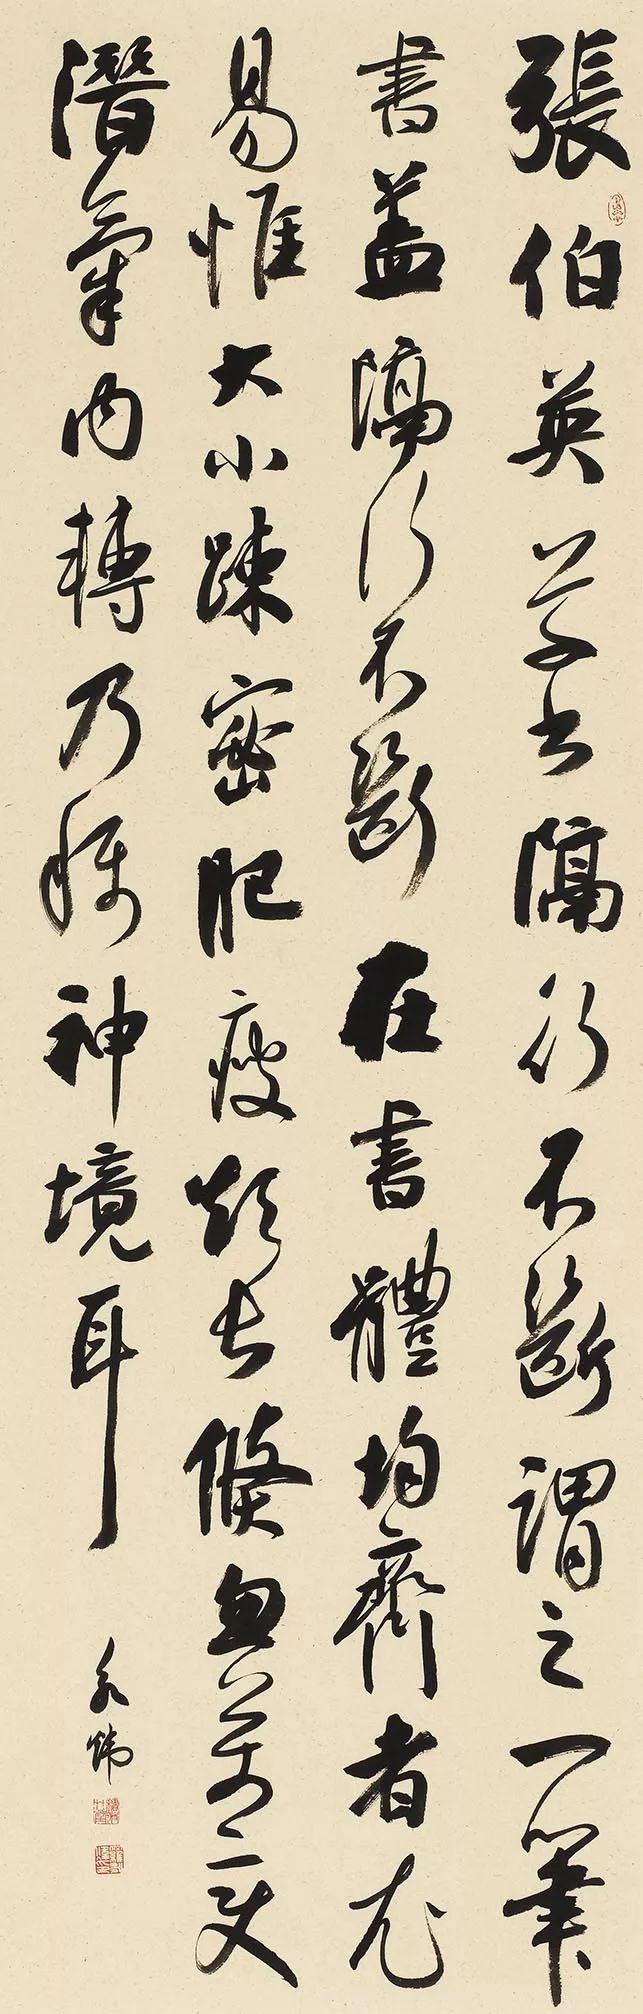 張伯英草書隔行不斷謂之一筆
書蓋隔行不斷在書體均齊者尤
易惟大小疎密肥瘦短長倏忽萬變
潛氣內轉乃稱神境耳
永煒